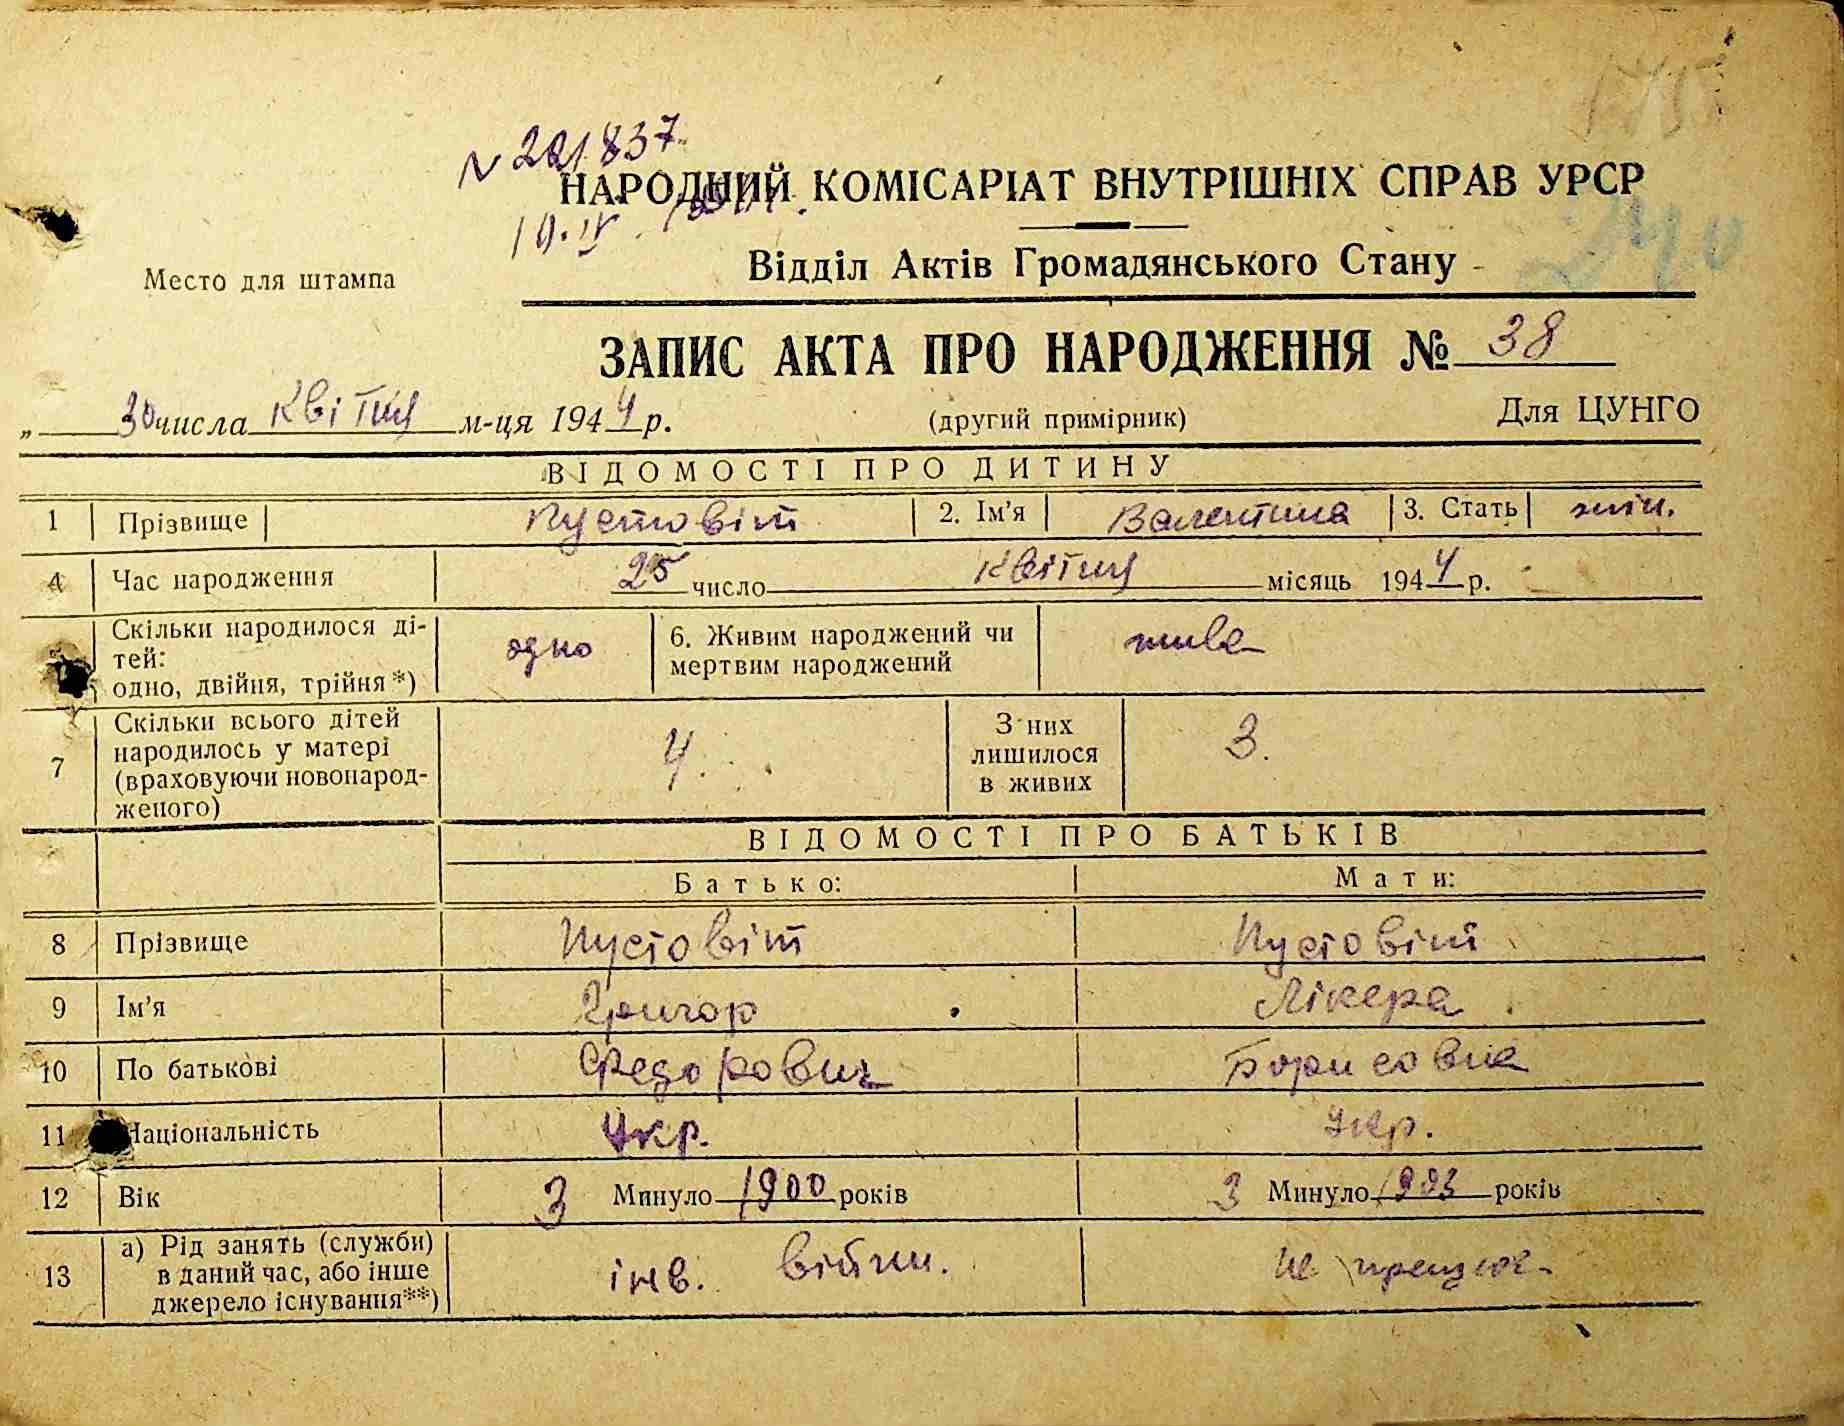 № 221837
НАРОДНИЙ КОМІСАРІАТ ВНУТРІШНІХ СПРАВ УРСР
Відділ Актів Громадянського Стану
Место для штампа
ЗАПИС АКТА ПРО НАРОДЖЕННЯ № 38
„ 30 числа квітня м-ця 1944 р. (другий примірник) Для ЦУНГО
ВІДОМОСТІ ПРО ДИТИНУ
1 Прізвище Пустовіт 2. Ім'я Валентина 3. Стать жін.
4 Час народження 25 число квітня місяць 1944 р.
Скільки народилося ді-
тей:
одно, двійня, трійня*) одно 6. Живим народжений чи
мертвим народжений жива
7 Скільки всього дітей
народилось у матері
(враховуючи новонарод-
женого) 4. З них
лишилося
в живих 3.
ВІДОМОСТІ ПРО БАТЬКІВ
Батько: Мати:
8 Прізвище Пустовіт Пустовіт
9 Ім'я Григор Лікера
10 По батькові Федорович Борисовна
11 Національність Укр. Укр.
12 Вік З Минуло 1900 років З Минуло 1903 років
13 а) Рід занять (служби)
в даний час, або інше
джерело існування**) інв. війни. не працює